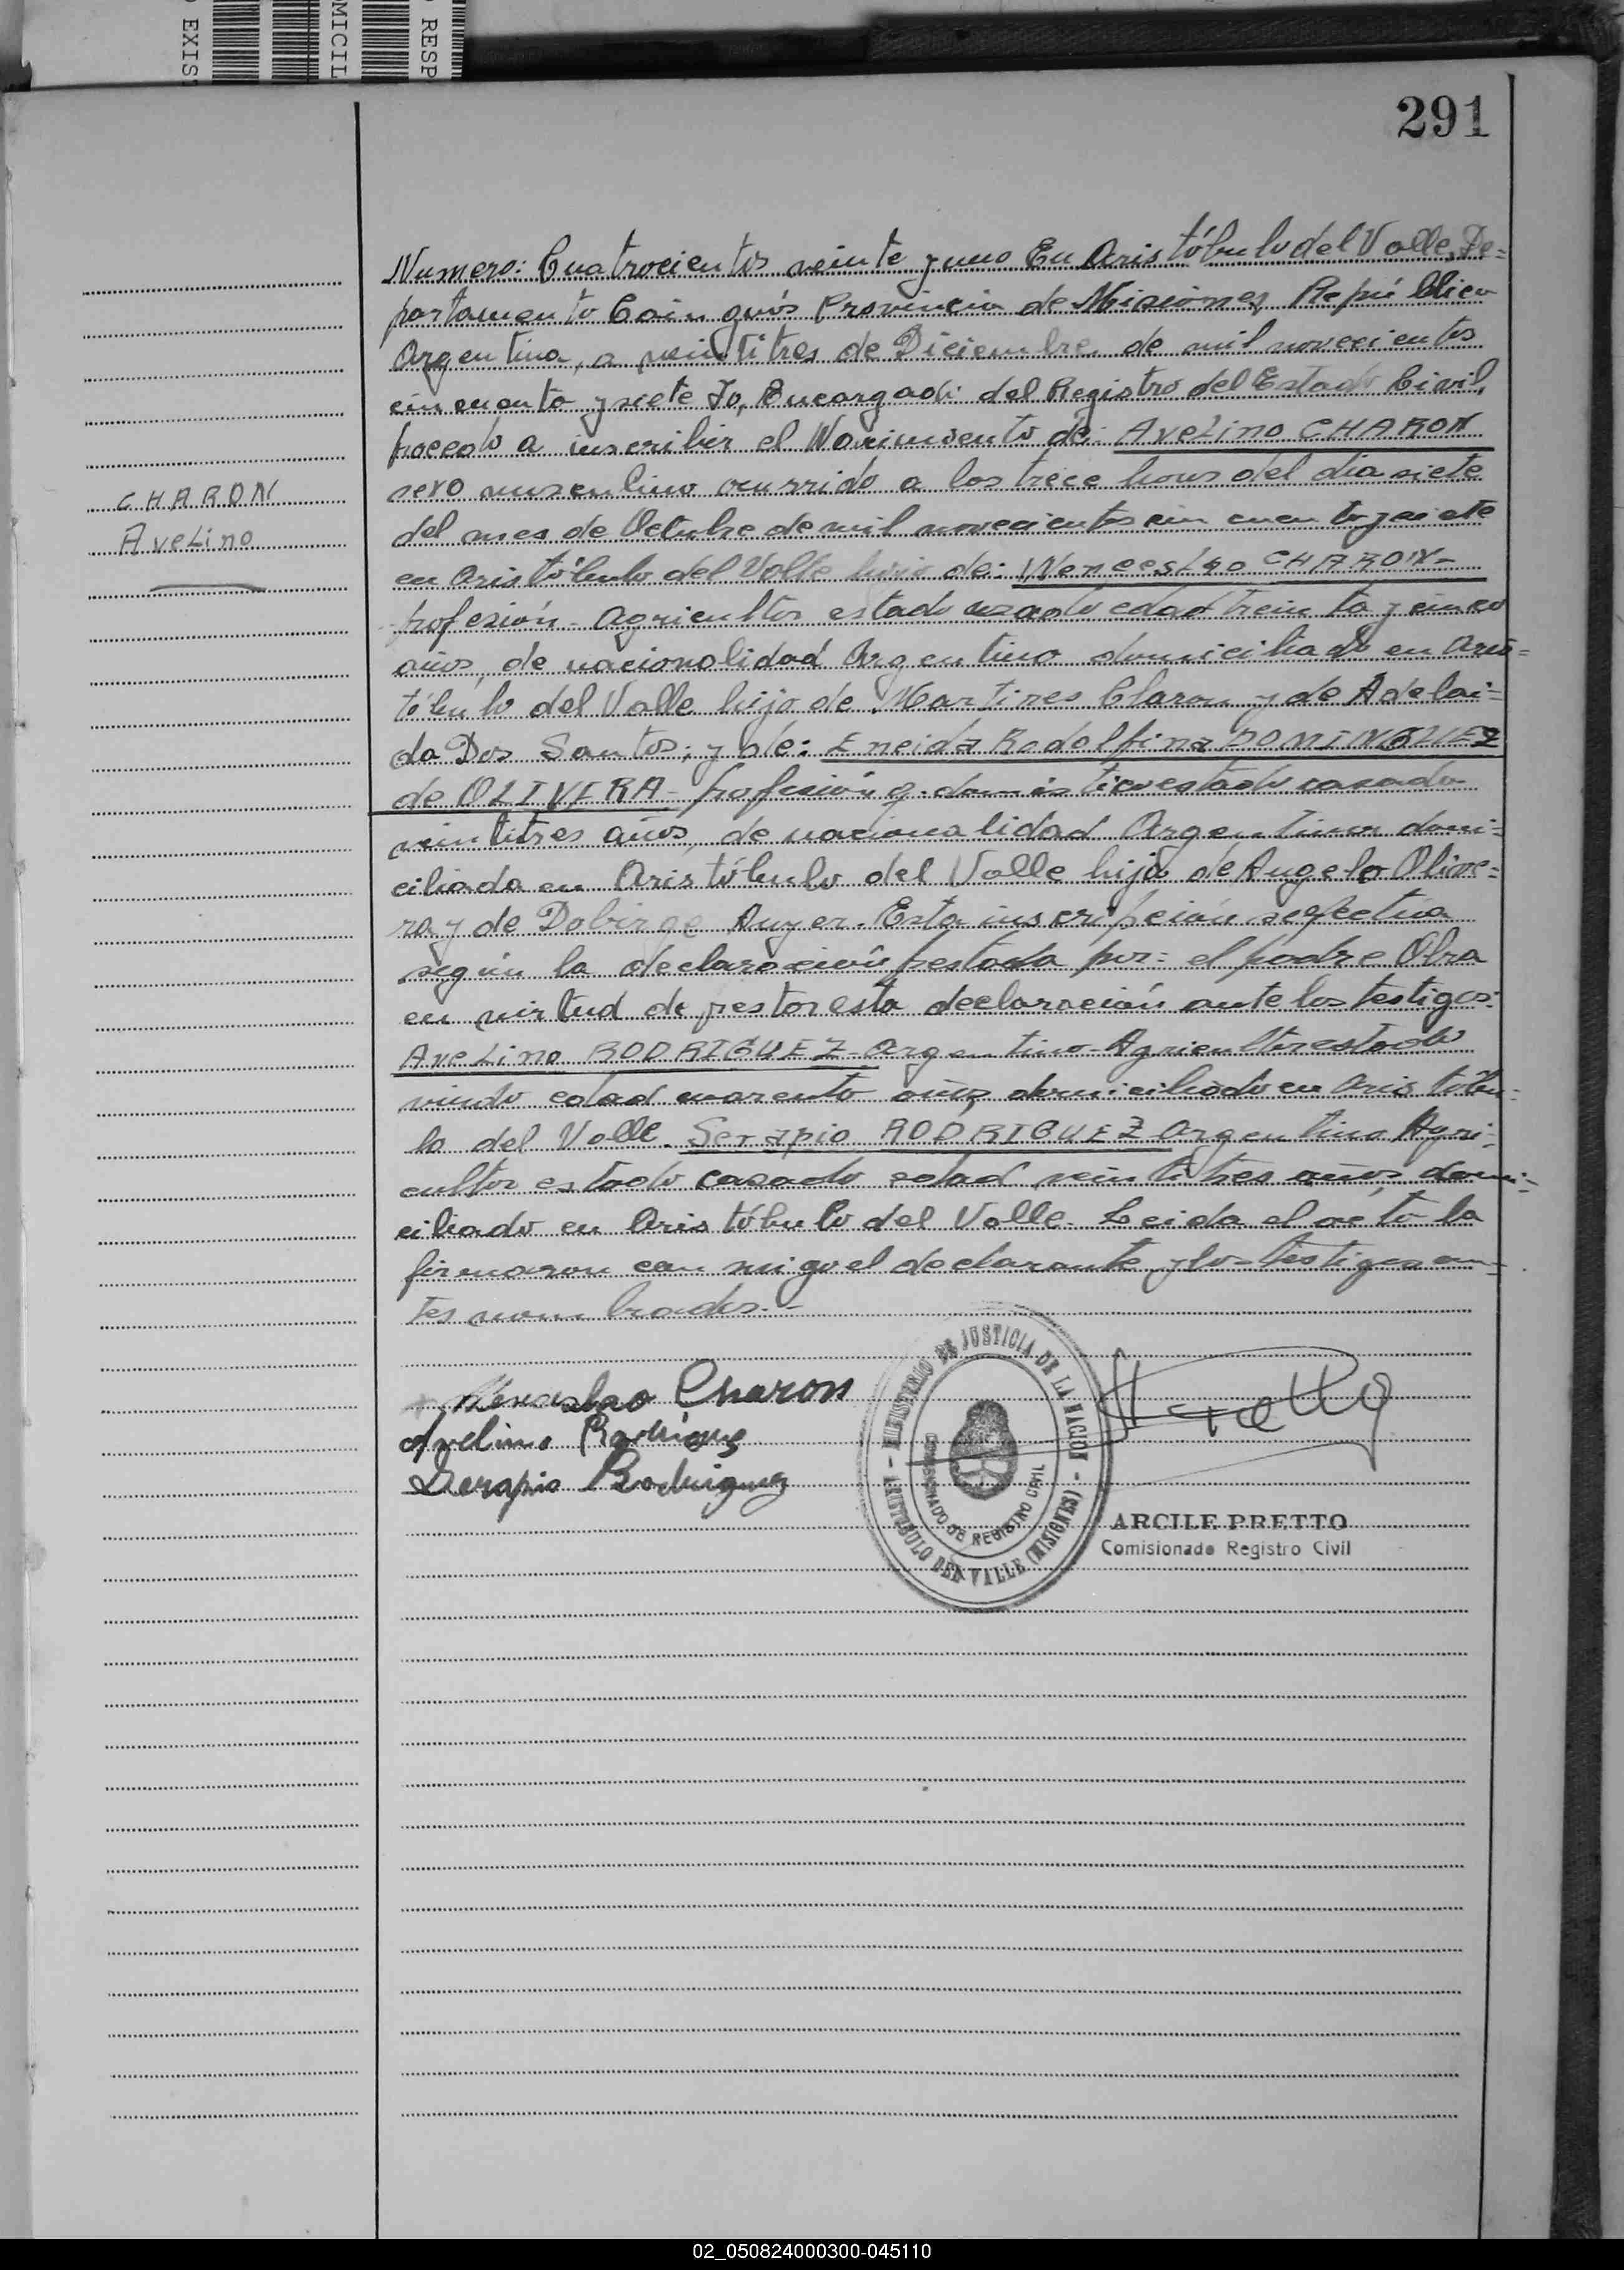 EXIS
MICIL
RESP
291
Numero: Cuatrocientos veinte y uno En Aristóbulo del Valle, De=
partamento Cainguás Provincia de Misiones, República
Argentina, a veintitres de Diciembre de mil novecientos
cincuenta y siete Yo, Encargado del Registro del Estado Civil,
procedo a inscribir el Nacimiento de: AveLino CHARON
sexo masculino ocurrido a las trece horas del dia siete
del mes de Octubre de mil novecientos cincuenta y siete
en Aristóbulo del Valle hijo de: WenceesLao CHARON-
profesión- agricultor estado casado edad treinta y cinco
años, de nacionalidad Argentino domiciliado en Aris=
tóbulo del Valle hijo de Martires Charon y de Adelai=
da Dos Santos; y de: Eneida Rodolfina DOMINGUEZ
de OLIVERA- profesión q. domestico estado casada
veintitres años, de nacionalidad Argentina domi=
ciliada en Aristóbulo del Valle hija de Angelo Olive=
ra y de Dobirge Auyer. Esta inscripción se efectua
según la declaración prestada por: el padre Obra
en virtud de prestar esta declaración ante los testigos:
AveLino RODRIGUEZ- Argentino- Agricultor estado
viudo edad cuarenta años domiciliado en Aristóbu=
lo del Valle. Serapio RODRIGUEZ Argentino Agri=
cultor estado casado edad veintitres años domi=
ciliado en Aristóbulo del Valle. Leida el acta la
firmaron con migo el declarante y los testigos an=
tes nombrados.-
CHARON
AveLino
Wenceslao Charon
Avelino Rodriguez
Serapio Rodriguez
MINISTERIO DE JUSTICIA DE LA NACION
COMISIONADO DE REGISTRO CIVIL
ARISTOBULO DEL VALLE (MISIONES)
ARCILE PRETTO
Comisionado Registro Civil
02_050824000300-045110